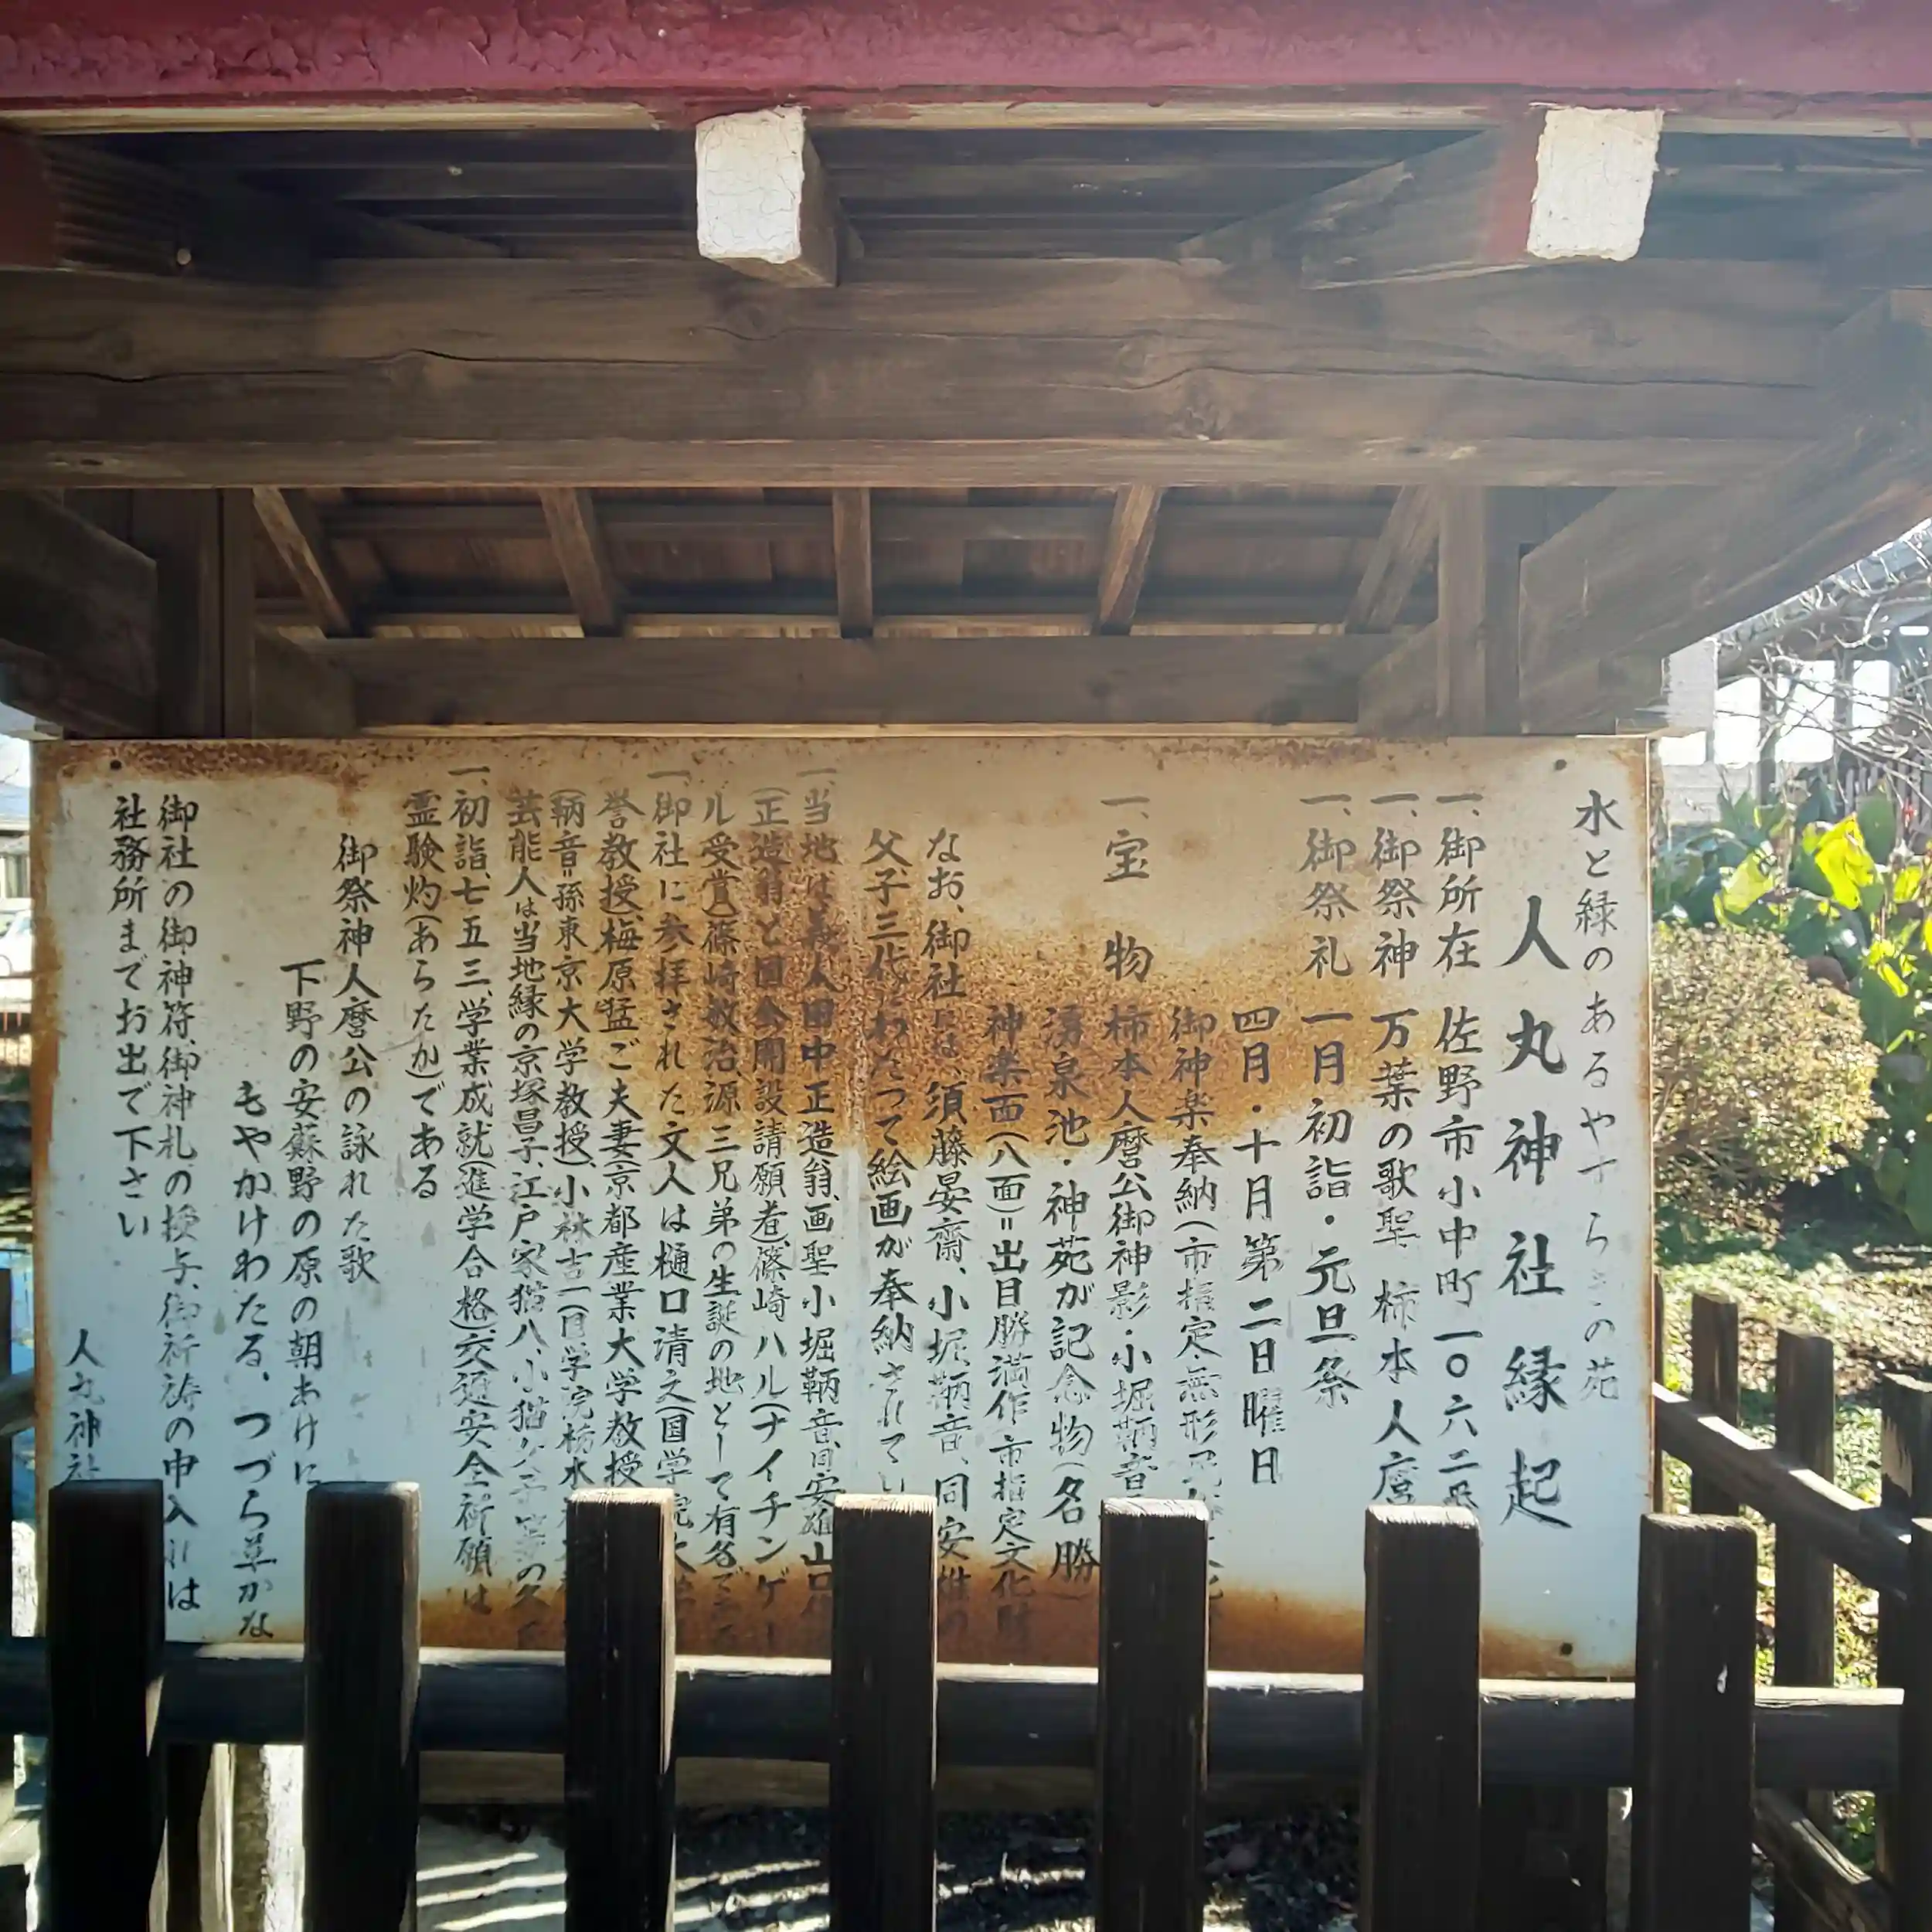 水と緑のあるやすらぎの苑
人丸神社縁起
一、御所在 佐野市小中町一〇六二
一、御祭神 万葉の歌聖 柿本人麿
一、御祭礼 一月初詣・元旦祭
四月・十月第二日曜日
御神楽奉納(市指定無形
一、宝物 柿本人麿公御神影・小堀鞆音
湧泉池・神苑が記念物(名勝)
神楽面(八面)=出目勝満作 市指定文化財
なお、御社には、須藤晏齋、小堀鞆音、同安雄の
父、子三代にわたって絵画が奉納されてい
一、当地は義人田中正造翁、画聖小堀鞆音、同安雄
(正造翁と国会開設請願者)、篠崎ハル(ナイチンゲー
ル受賞)篠崎敏治、源三兄弟の生誕の地として有名で
一、御社に参拝された文人は樋口清之(国学院大
誉教授)、梅原猛ご夫妻(京都産業大学教授
(鞆音=孫東京大学教授)、小林吉一(国学院栃木
芸能人は当地縁の京塚昌子、江戸家猫八、小猫
一、初詣、七五三、学業成就(進学合格)、交通安全祈願は
霊験灼(あらたか)である
御祭神人麿公の詠れた歌
下野の安蘇野の原の朝あけに
もやかけわたる、つづら草かな
御社の御神符、御神札の授与、御祈祷の申入れは
社務所までお出で下さい
人丸神社